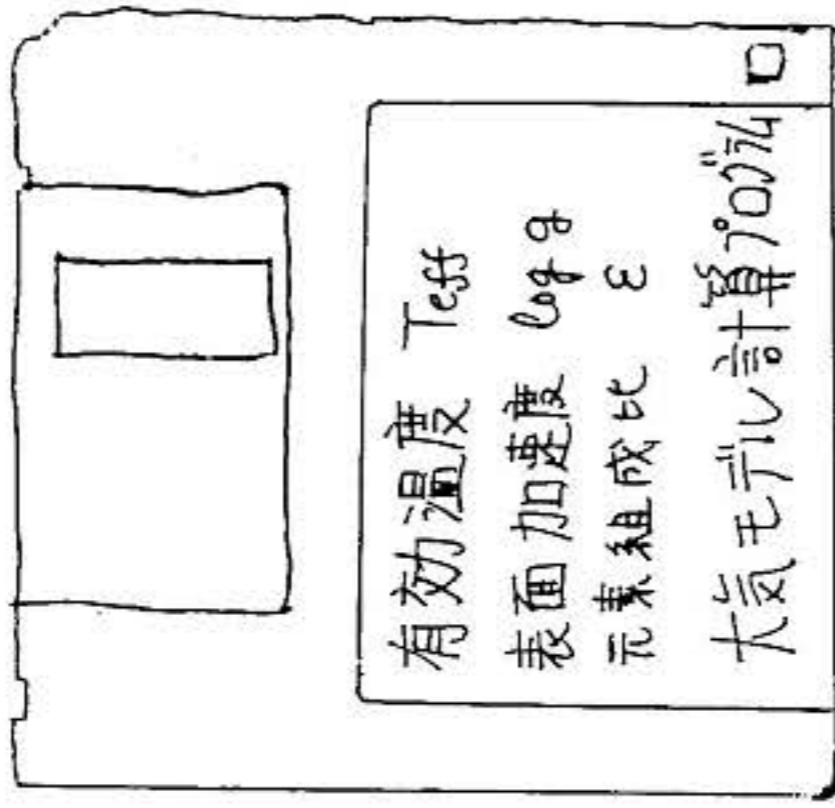 有効温度 Teff
表面加速度 log g
元素組成比 ε
大気モデル計算プログラム